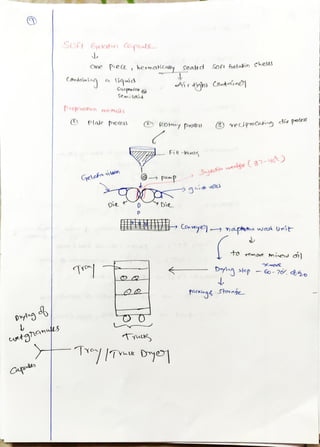 9
Soft Gelatin Capsule
one piece, hermetically sealed soft gelatin shells
containing a liquid
suspension or
semisolid
Air tight container
Preparation methods
① Plate process ② Rotary process ③ reciprocating die process
Fill-tank
pump
Injection wedge (37-40°C)
Gelatin ribbon
guide rolls
Die
Die
conveyer → naptha wash unit
to remove mineral oil
Drying step - 60-70%
package storage
Tray
Trucks
Drying of
wet granules
capsules
Tray/Truck Dryer